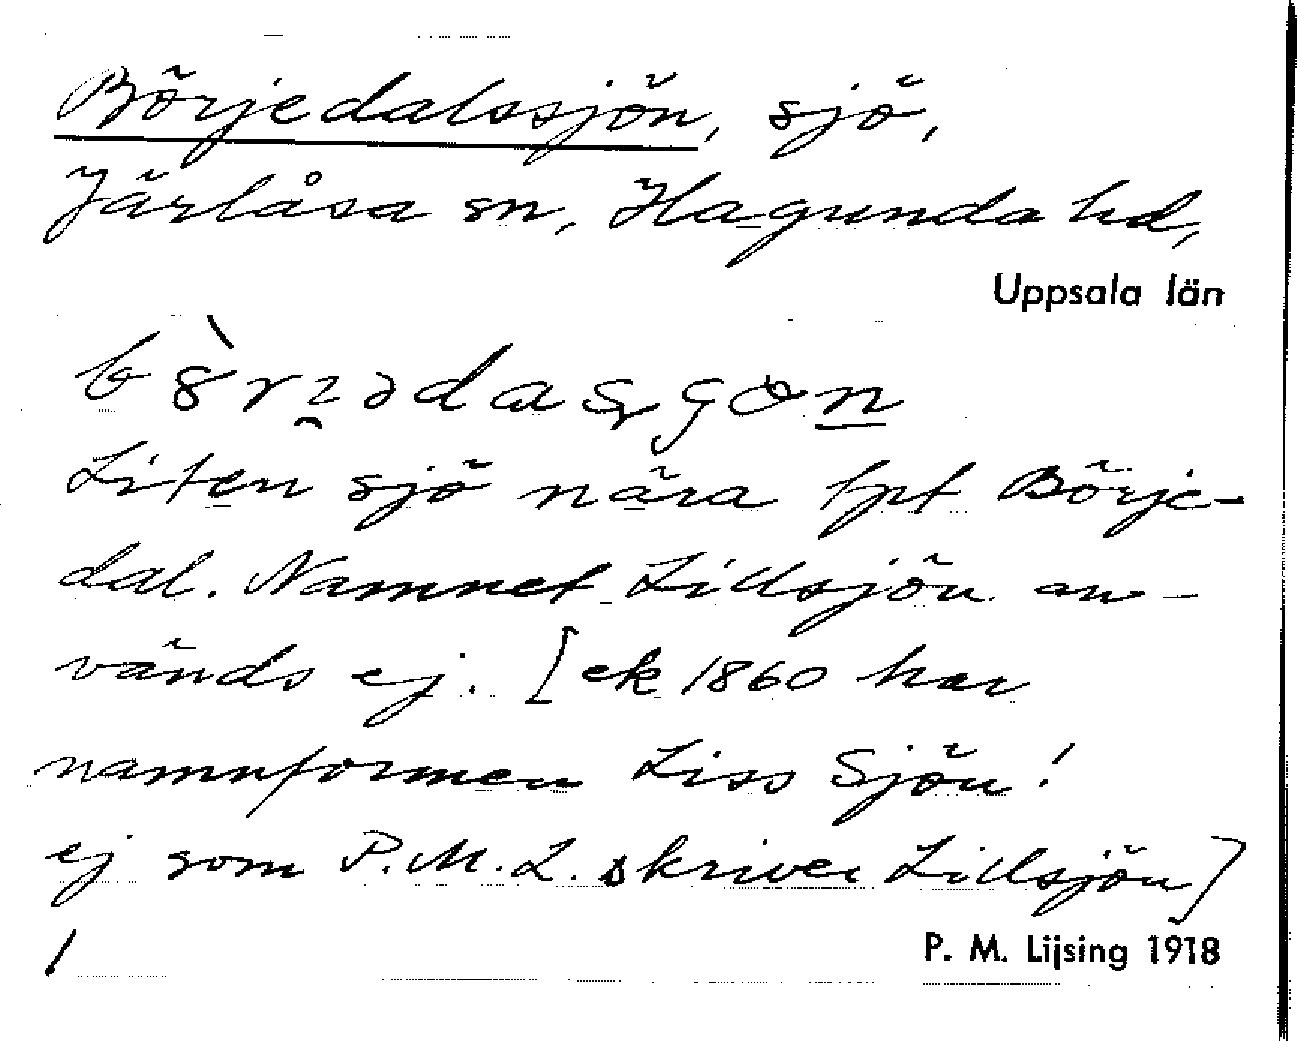 Börjedalssjön, sjö,
Järlåsa sn, Hagunda hd,
Uppsala län
Liten sjö nära tpt Börje-
dal. Namnet Lillsjön an-
vänds ej. [ek 1860 har
namnformen Liss Sjön!
ej som P.M.L. skriver Lillsjön]
P. M. Lijsing 1918